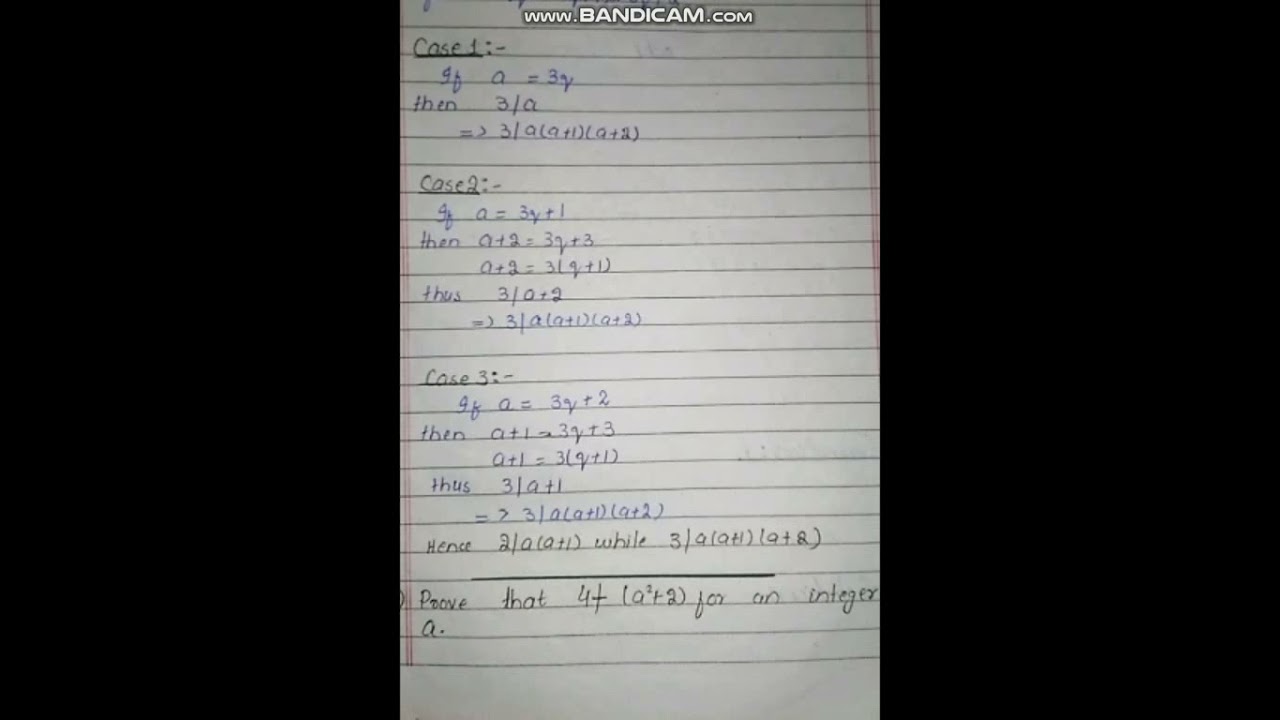 www.BANDICAM.com
Case 1:-
If a = 3q
then 3/a
=> 3/a(a+1)(a+2)
Case 2:-
If a = 3q+1
then a+2 = 3q+3
a+2 = 3(q+1)
thus 3/a+2
=> 3/a(a+1)(a+2)
Case 3:-
If a = 3q+2
then a+1 = 3q+3
a+1 = 3(q+1)
thus 3/a+1
=> 3/a(a+1)(a+2)
Hence 2/a(a+1) while 3/a(a+1)(a+2)
Prove that 4∤ (a²+2) for an integer
a.